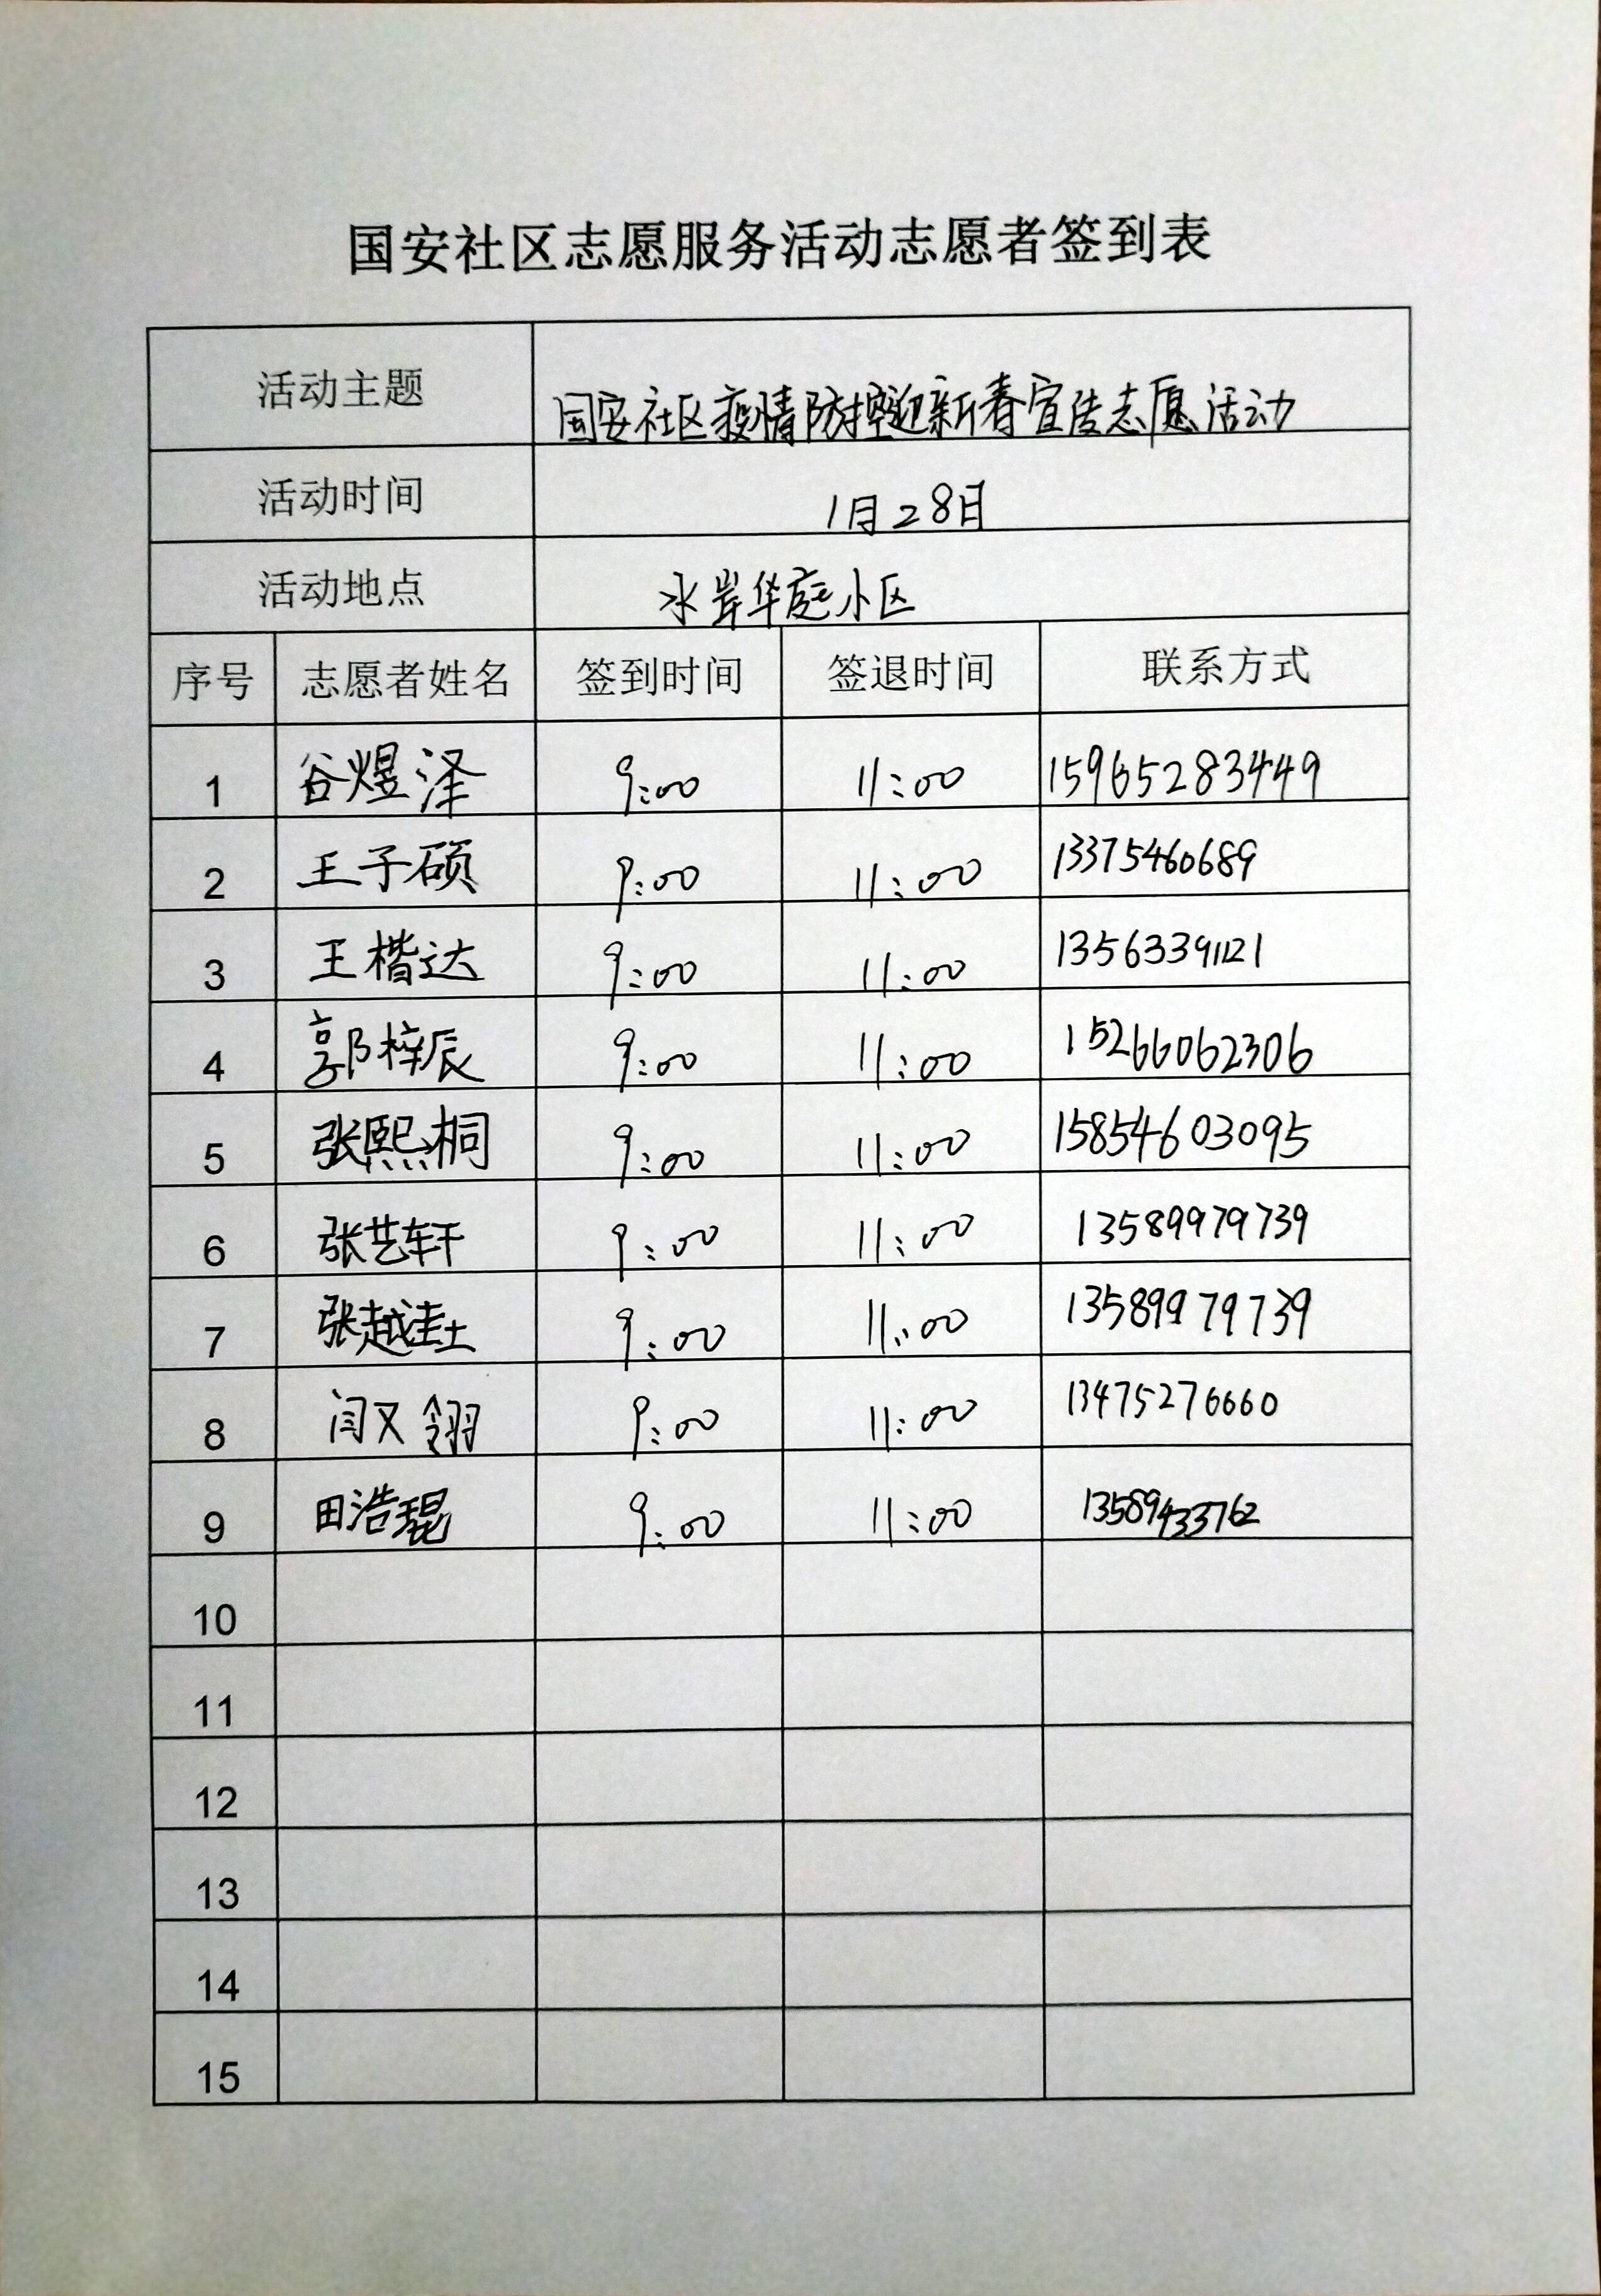 国安社区志愿服务活动志愿者签到表
活动主题 国安社区疫情防控迎新春宣传志愿活动
活动时间 1月28日
活动地点 水岸华庭小区
序号 志愿者姓名 签到时间 签退时间 联系方式
1 谷煜泽 9:00 11:00 15965283449
2 王子硕 9:00 11:00 13375460689
3 王楷达 9:00 11:00 13563391121
4 郭梓辰 9:00 11:00 15266062306
5 张熙桐 9:00 11:00 15854603095
6 张艺轩 9:00 11:00 13589979739
7 张越 9:00 11:00 13589979739
8 闫又翎 9:00 11:00 13475276660
9 田浩琨 9:00 11:00 13589433762
10
11
12
13
14
15